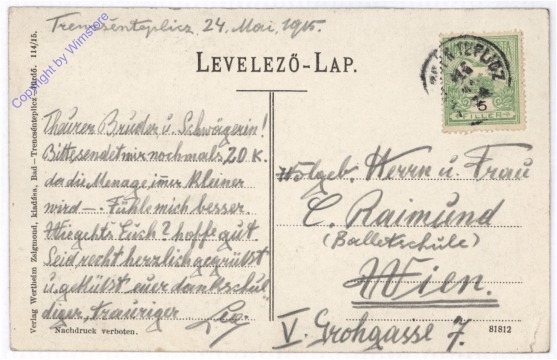 Trencsénteplicz, 24. Mai, 1915.
Copyright by Wimstore
LEVELEZŐ-LAP.
TEPLICZ
6
FILLER
Teurer Bruder u. Schwägerin!
Bitte sendet mir nochmals 20 K.
da die Menage immer kleiner
wird —. Fühle mich besser.
Wie gehts Euch? hoffe gut
Seid recht herzlich gegrüßt
u. geküßt euer dankschul
diger, trauriger
Wolgeb. Herrn u. Frau
C. Raimund
(Balletschule)
Wien.
V. Grohgasse 7.
Verlag Wertheim Zsigmond, kiadása, Bad-Trencsénteplicz-fürdő. 114/15.
Nachdruck verboten.
81812